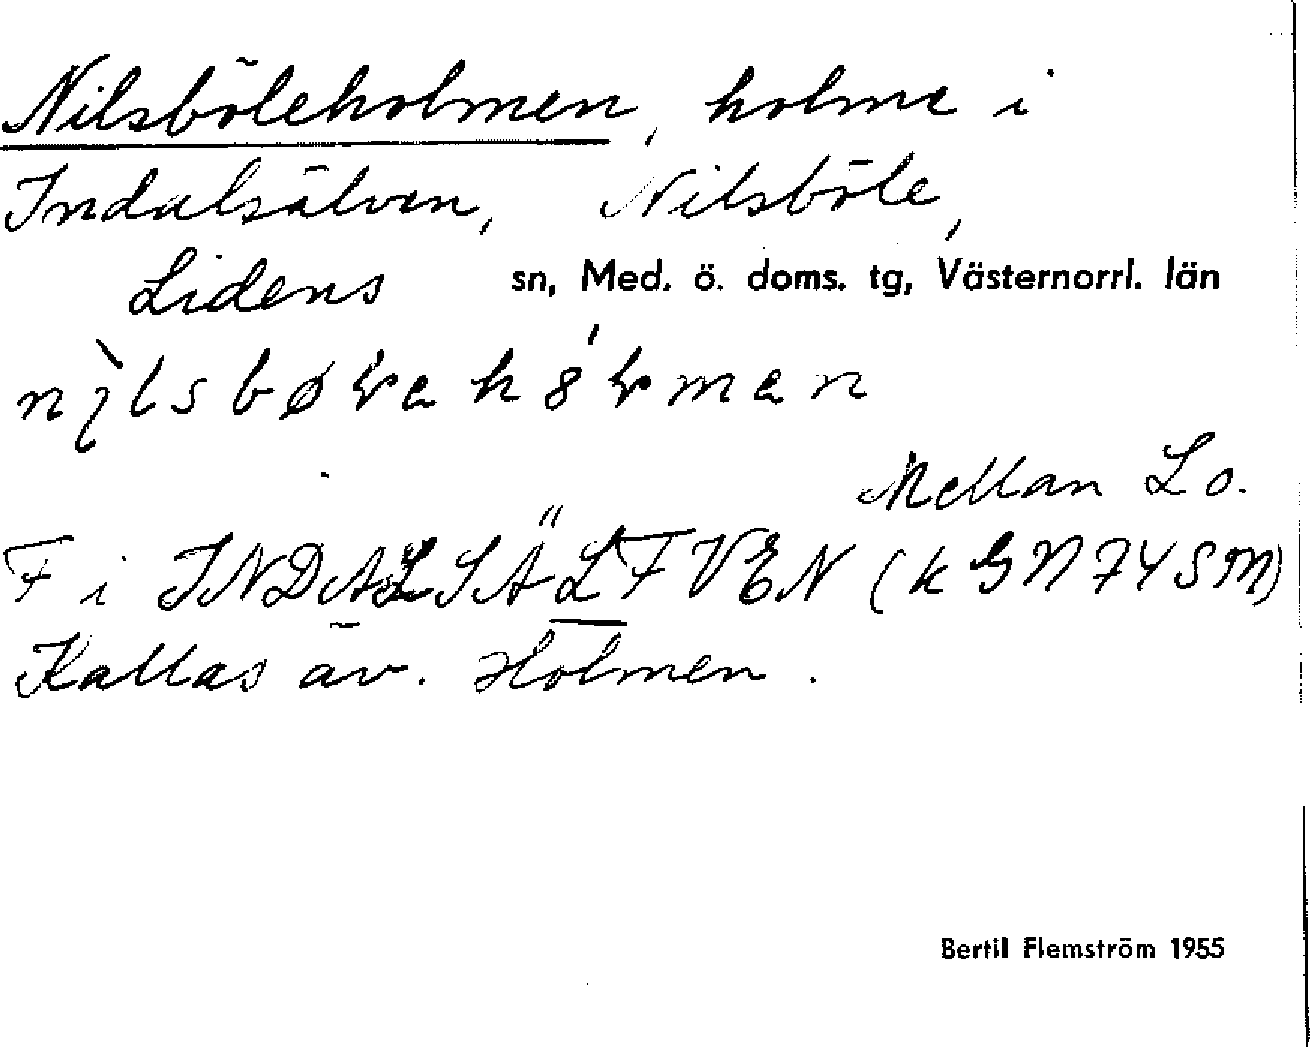 Nilsböleholmen, holme i
Indalsälven, Nilsböle,
Lidens sn, Med. ö. doms. tg, Västernorrl. län
Mellan Lo.
F i INDALSÄLFVEN (k GN74SM)
Kallas äv. Holmen.
Bertil Flemström 1955